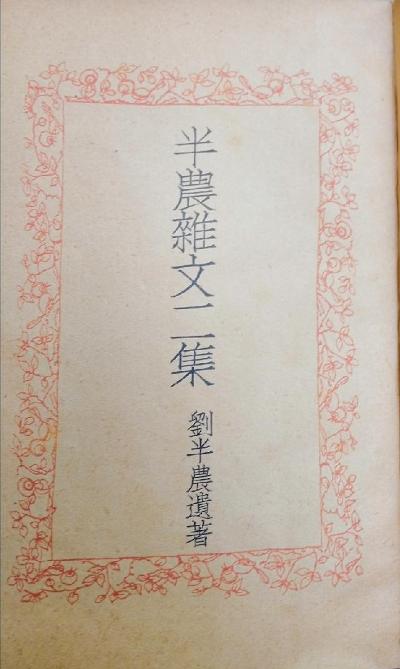 半農雜文二集
劉半農遺著